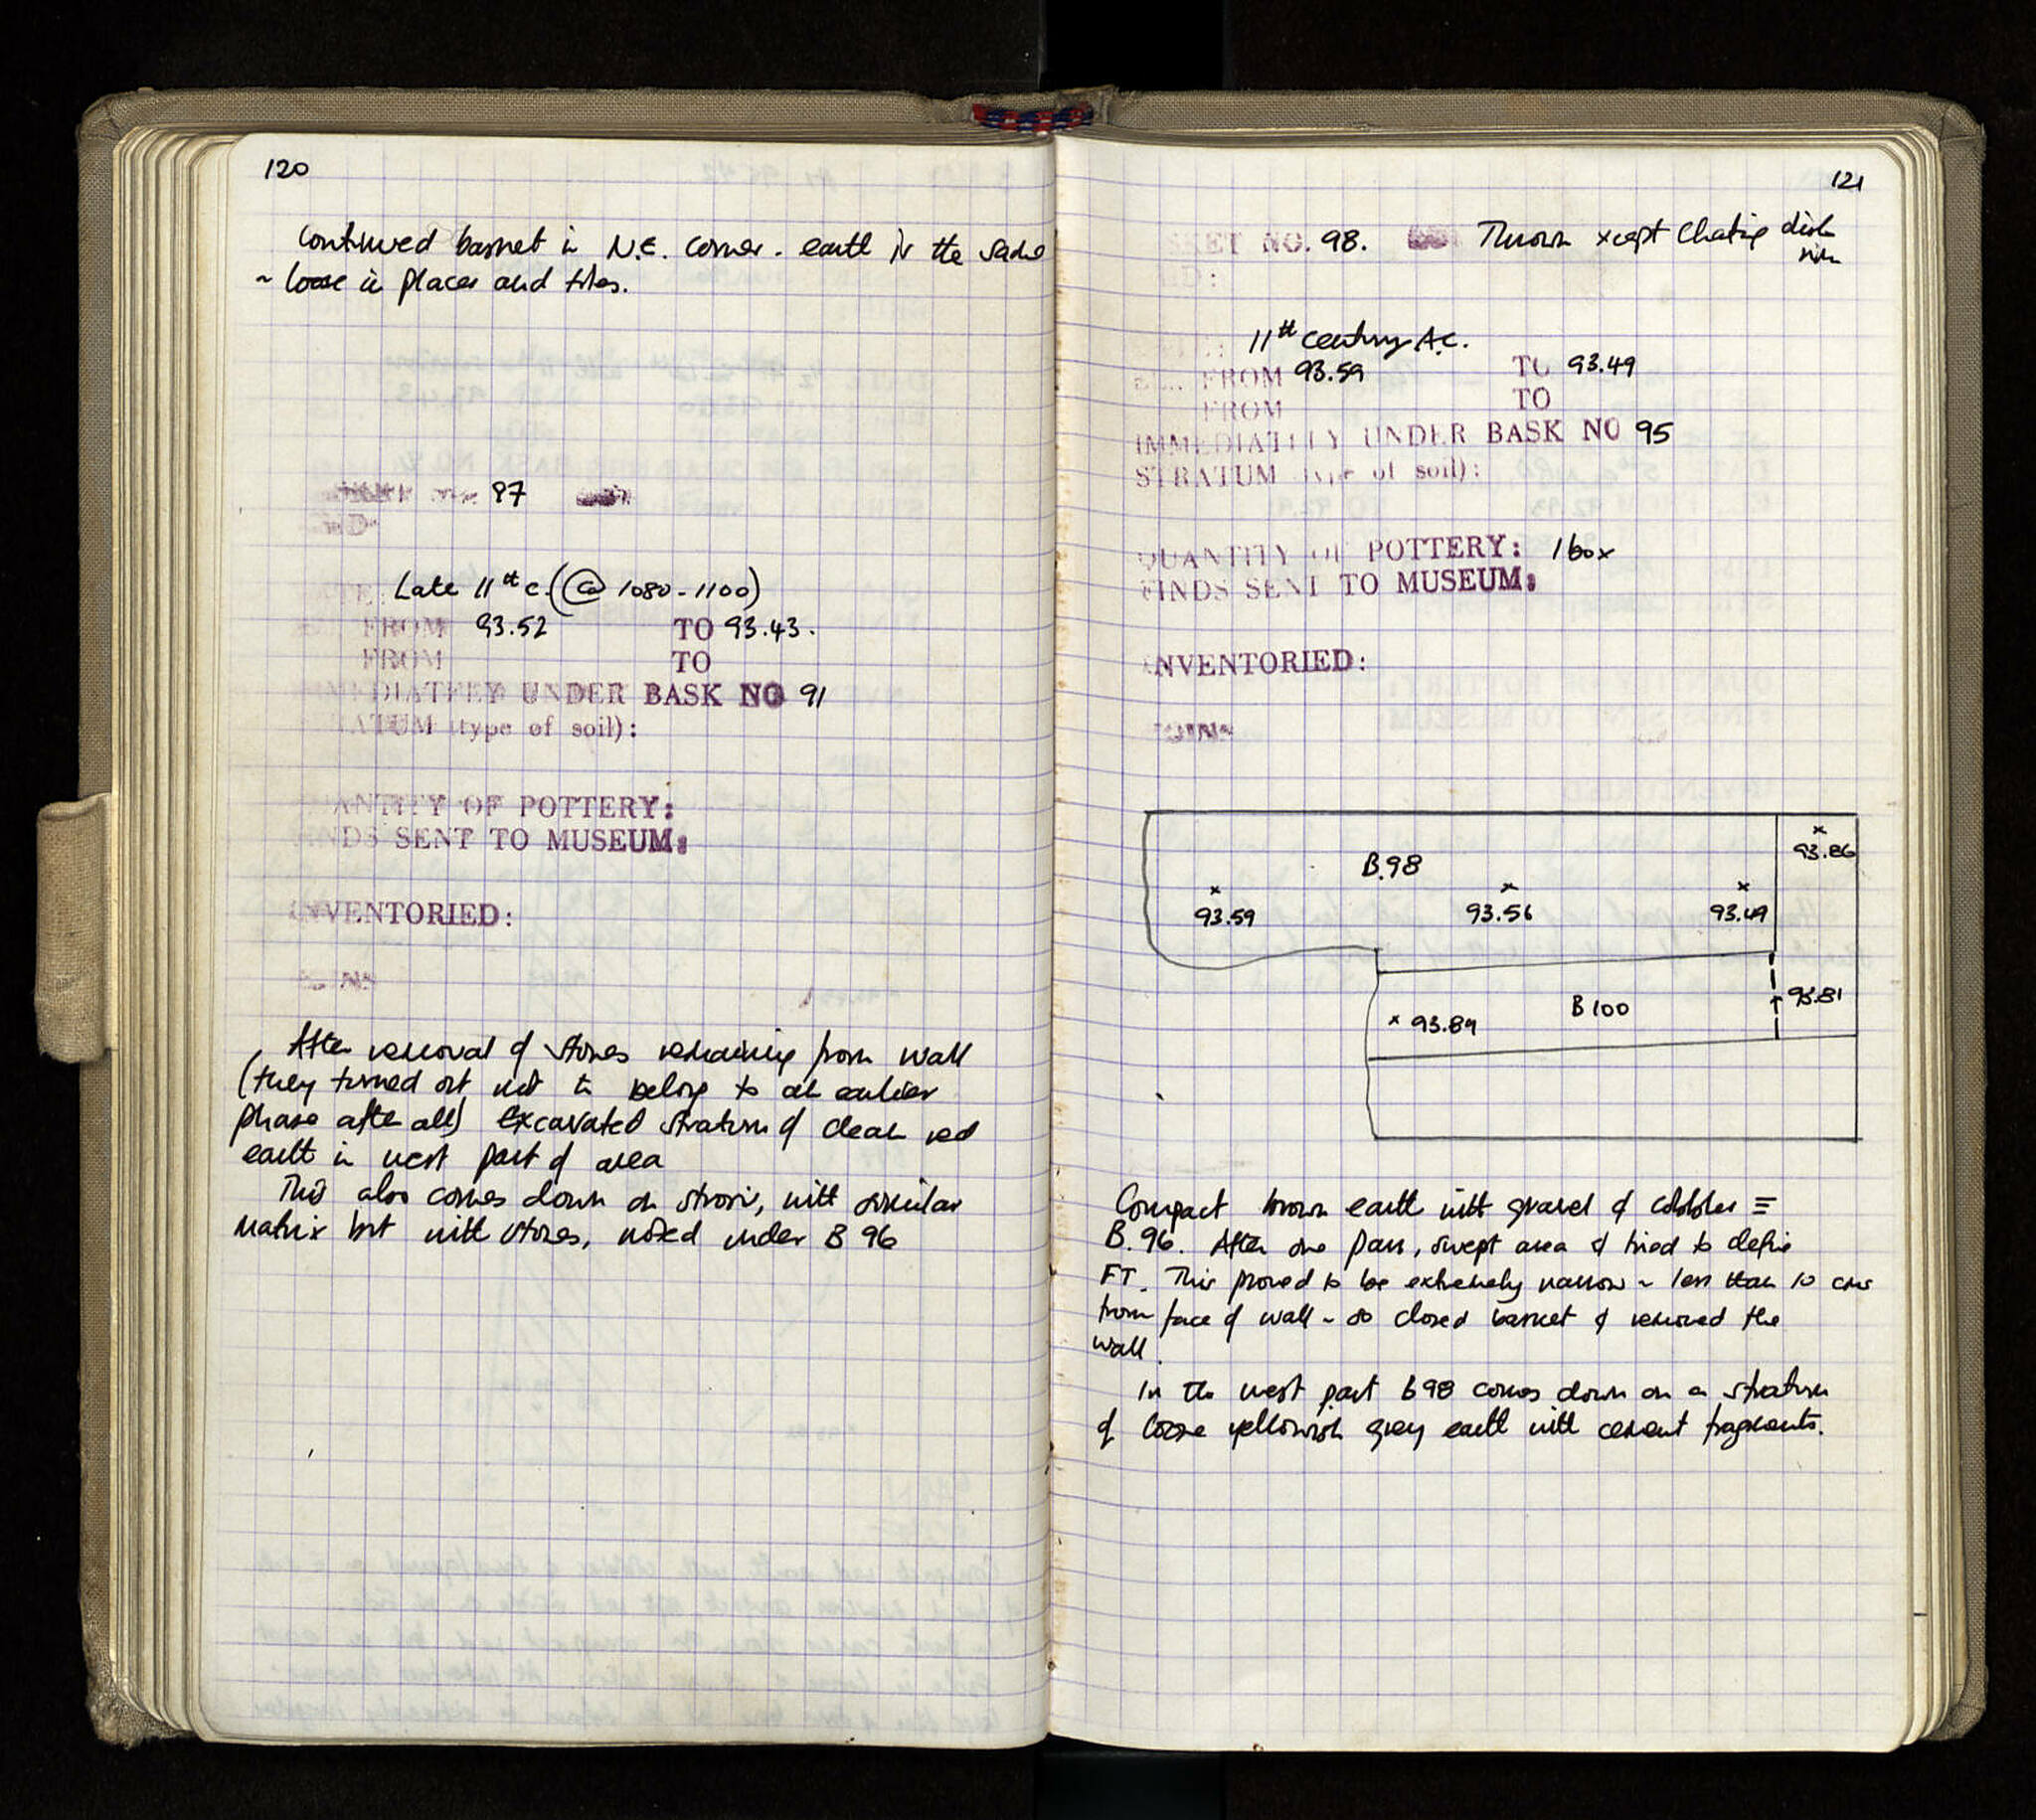 120
Continued basket in N.E. corner. earth is the same
~ loose in places and tiles.
97
Late 11th c. (@ 1080-1100)
FROM 93.52 TO 93.43.
FROM TO
IMMEDIATELY UNDER BASK NO 91
STRATUM (type of soil):
QUANTITY OF POTTERY:
FINDS SENT TO MUSEUM:
INVENTORIED:
COINS
After removal of stones remaining from wall
(they turned out not to belong to an earlier
phase after all) excavated stratum of clean red
earth in west part of area
This also comes down on strosis, with similar
matrix but with stones, noted under B 96
121
BASKET NO. 98. Thrown xcept Chafing dish
rim
11th century A.C.
FROM 93.59 TO 93.49
FROM TO
IMMEDIATELY UNDER BASK NO 95
STRATUM (type of soil):
QUANTITY OF POTTERY: 1 box
FINDS SENT TO MUSEUM:
INVENTORIED:
COINS
x 93.86
B.98
x 93.59 x 93.56 x 93.49
x 93.89 B 100 93.81
Compact brown earth with gravel & cobbles ≡
B.96. After one pass, swept area & tried to define
FT. This proved to be extremely narrow ~ less than 10 cms
from face of wall ~ so closed basket & removed the
wall.
In the west part B98 comes down on a stratum
of loose yellowish grey earth with cement fragments.